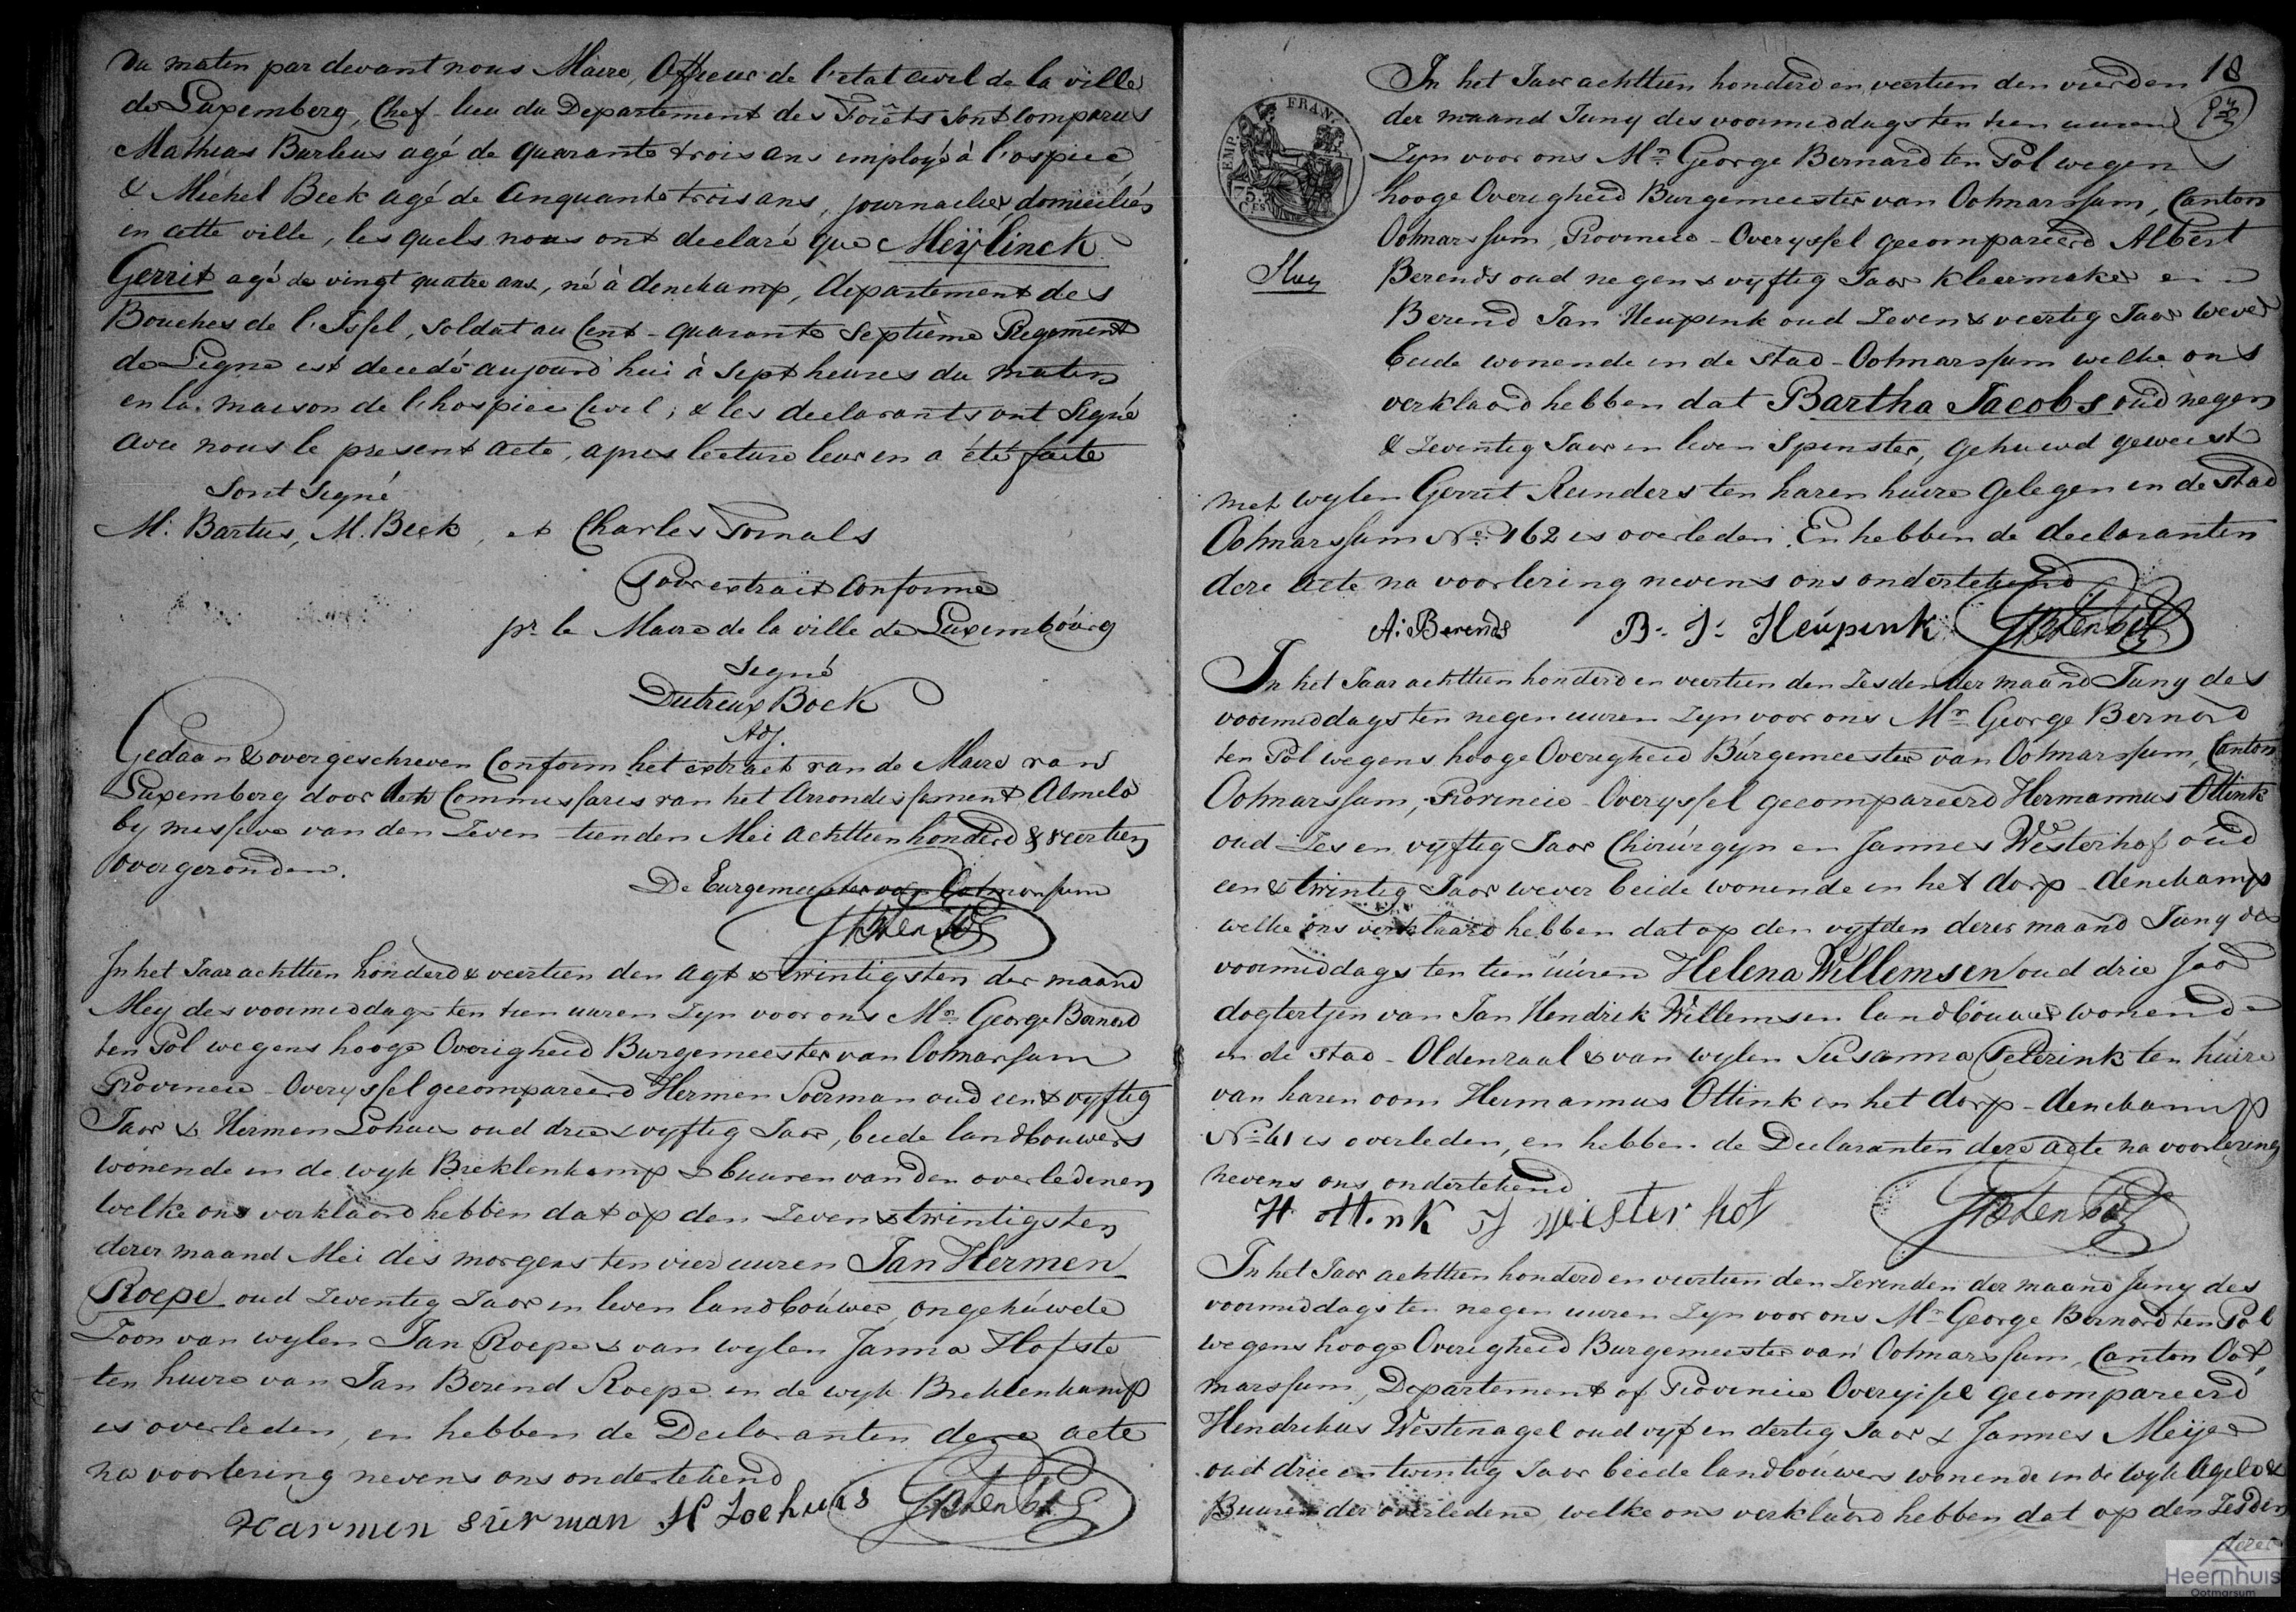 du maten par devant nous Maire, Officier de l'etat civil de la ville
de Luxemberg, Chef-lieu du Departement des Forêts sont comparus
Mathias Barleus agé de quarante trois ans employé à l'ospice
& Michel Beek agé de Cinquante trois ans, journaelier domiciliés
in cette ville, les quels nous ont declaré que Meÿlinck
Gerrit agé de vingt quatre ans, né à denekamp, departement des
Bouches de l'Issel, soldat au Cent-quarante septième Regement
de Ligne est decedé aujourd'hui à sept heures du maten
en la maison de l'hospice Civil; & les declarants ont Signé
avec nous le present acte, apres lecture leur en a été faite
Sont Signé
M. Bartus, M. Beek, et Charles Tornals
Pour extrait Conforme
pr. le Maire de la ville de Luxembourg
Signé
Dutreux Bock
Adj.
Gedaan & overgeschreven Conform het extract van de Maire van
Luxemberg door den Commissaris van het Arrondissement Almelo
by missive van den Zeven tienden Mei achttien honderd & veertien
overgezonden.
De Burgemeester van Ootmarssum
In het Jaar achttien honderd & veertien den agt & twintigsten der maand
Mey des voormiddags ten tien uuren Zyn voor ons Mr. George Bernard
ten Pol wegens hooge Overigheid Burgemeester van Ootmarsum
Provincie Overyssel gecompareerd Hermen Soerman oud een & vyftig
Jaar & Hermen Lohuis oud drie & vyftig Jaar, beide landbouwers
wonende in de wyk Breklenkamp & buuren van den overledenen
welke ons verklaard hebben dat op den Zeven & twintigsten
dezer maand Mei des morgens ten vier uuren Jan Hermen
Roepe oud Zeventig Jaar in leven landbouwer, ongehuwde
Zoon van wylen Jan Roepe & van wylen Janna Hofste
ten huize van Jan Berend Roepe in de wyk Breklenkamp
is overleden, en hebben de Declaranten deze acte
na voorlezing nevens ons ondertekend
Harmen surman H Loehuis GBtenPol
18
In het Jaar achttien honderd en veertien den vierden
der maand Juny des voormiddags ten tien uuren
Zyn voor ons Mr. George Bernard ten Pol wegens
hooge Overigheid Burgemeester van Ootmarssum, Canton
Ootmarssum, Provincie Overyssel gecompareerd Albert
Berends oud negen & vyftig Jaar kleermaker en
Berend Jan Heupink oud Zeven & veertig Jaar wever
beide wonende in de stad Ootmarssum welke ons
verklaard hebben dat Bartha Jacobs oud negen
& Zeventig Jaar in leven Spinster, gehuwd geweest
met wylen Gerrit Reinders ten haren huize gelegen in de Stad
Ootmarssum No. 162 is overleden. En hebben de declaranten
deze acte na voorlezing nevens ons ondertekend
A: Berends B. J. Heupink GBtenPol
In het Jaar achttien honderd en veertien den Zesden der maand Juny des
voormiddags ten negen uuren Zyn voor ons Mr. George Bernard
ten Pol wegens hooge Overigheid Burgemeester van Ootmarssum, Canton
Ootmarssum, Provincie Overyssel gecompareerd Hermannus Ottink
oud Zes en vyftig Jaar Chirurgyn en Jannes Westerhof oud
een & twintig Jaar wever beide wonende in het dorp denekamp
welke ons verklaard hebben dat op den vyfden dezer maand Juny des
voormiddags ten tien uuren Helena Willemsen oud drie Jaar
dogtertjen van Jan Hendrik Willemsen landbouwer wonende
in de stad Oldenzaal & van wylen Susanna Peterink ten huize
van haren oom Hermannus Ottink in het dorp denekamp
No. 41 is overleden, en hebben de Declaranten deze acte na voorlezing
nevens ons ondertekend
H ottink J westerhof GBtenPol
In het Jaar achttien honderd en veertien den Zevenden der maand Juny des
voormiddags ten negen uuren Zyn voor ons Mr. George Bernard ten Pol
wegens hooge Overigheid Burgemeester van Ootmarssum, Canton Oot,
marssum, Departement of Provincie Overyssel gecompareerd
Hendrikus Westenagel oud vyf en dertig Jaar & Jannes Meijer
oud drie en twintig Jaar beide landbouwers wonende in de wyk Agelo &
Buuren der overledene welke ons verklaard hebben dat op den Zesden
dezer
EMP. FRAN.
75 CES
Heemhuis
Ootmarsum